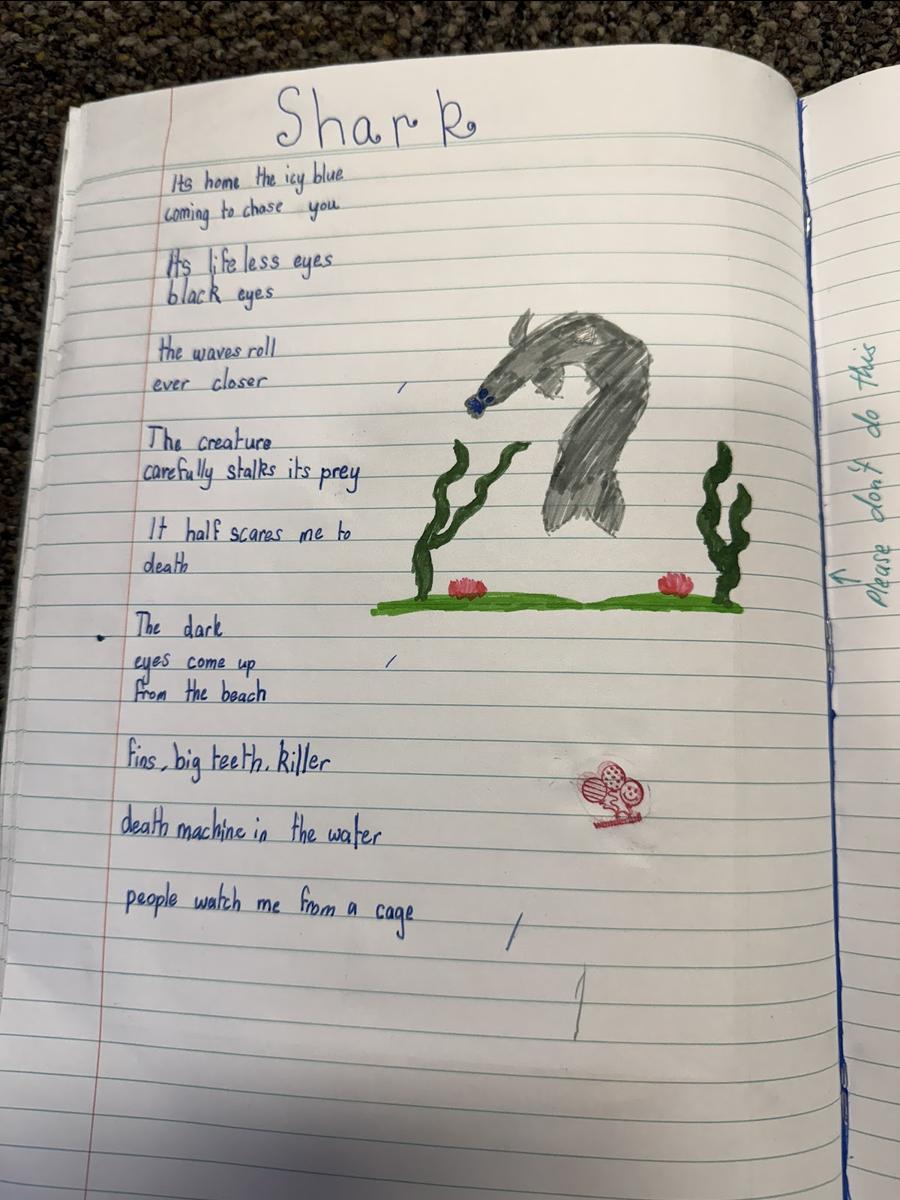 Shark
Its home the icy blue
coming to chase you
Its lifeless eyes
black eyes
the waves roll
ever closer
The creature
carefully stalks its prey
It half scares me to
death
The dark
eyes come up
from the beach
fins, big teeth, killer
death machine in the water
people watch me from a cage
Please don't do this